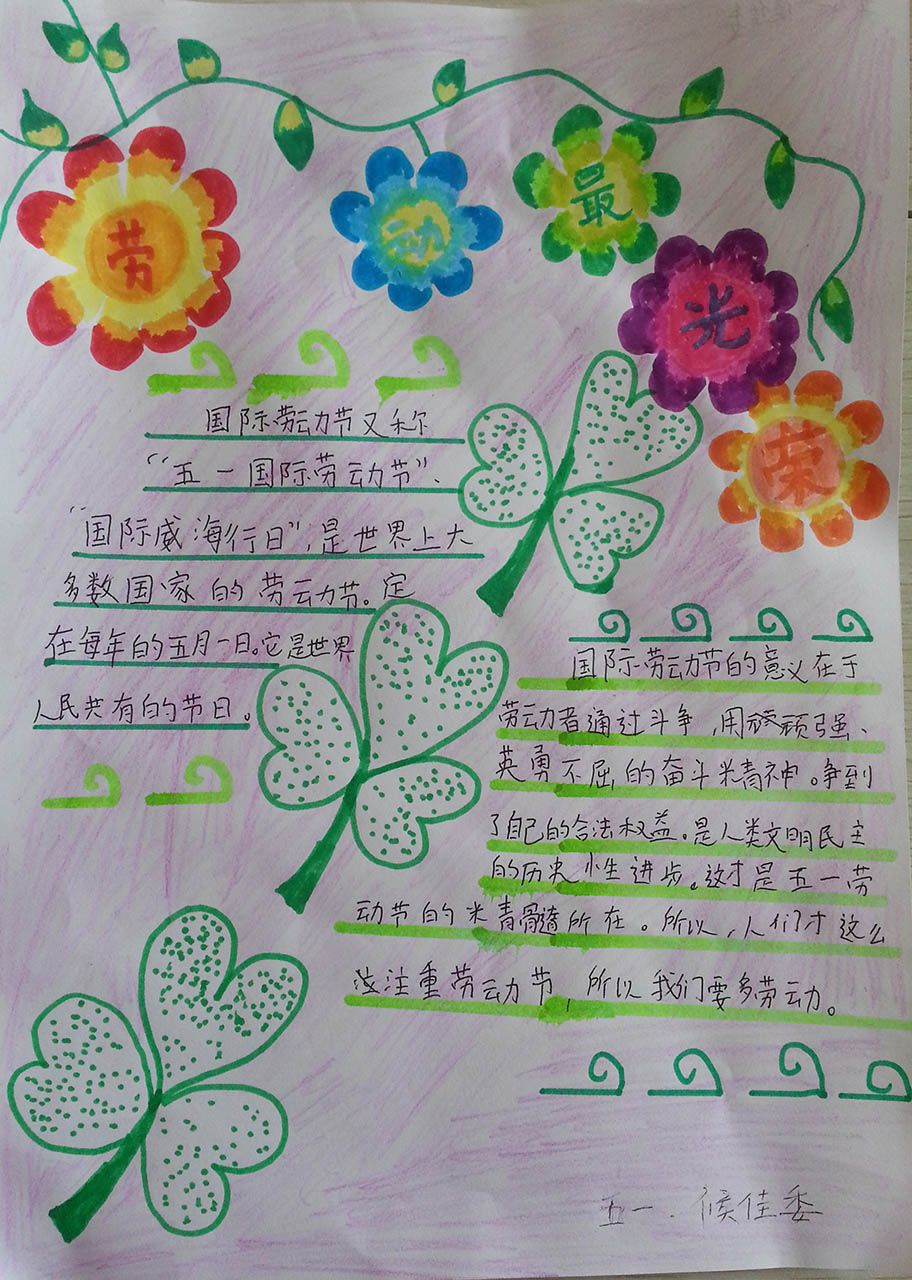 劳动最光荣
国际劳动节又称
“五一国际劳动节”、
“国际威海行日”,是世界上大
多数国家的劳动节。定
在每年的五月一日。它是世界
人民共有的节日。
国际劳动节的意义在于
劳动者通过斗争,用顽强、
英勇不屈的奋斗精神。争到
了自己的合法权益。是人类文明民主
的历史性进步。这才是五一劳
动节的精髓所在。所以,人们才这么
注重劳动节,所以我们要多劳动。
五一.候佳委